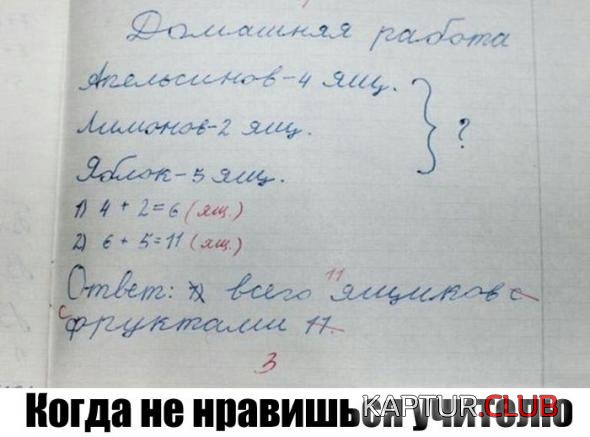 Домашняя работа
Апельсинов-4 ящ.
Лимонов-2 ящ. } ?
Яблок-5 ящ.
1) 4 + 2 = 6 (ящ.)
2) 6 + 5 = 11 (ящ.)
11
Ответ: всего ящиков с
с фруктами 11.
3
Когда не нравишься учителю
KAPTUR.CLUB